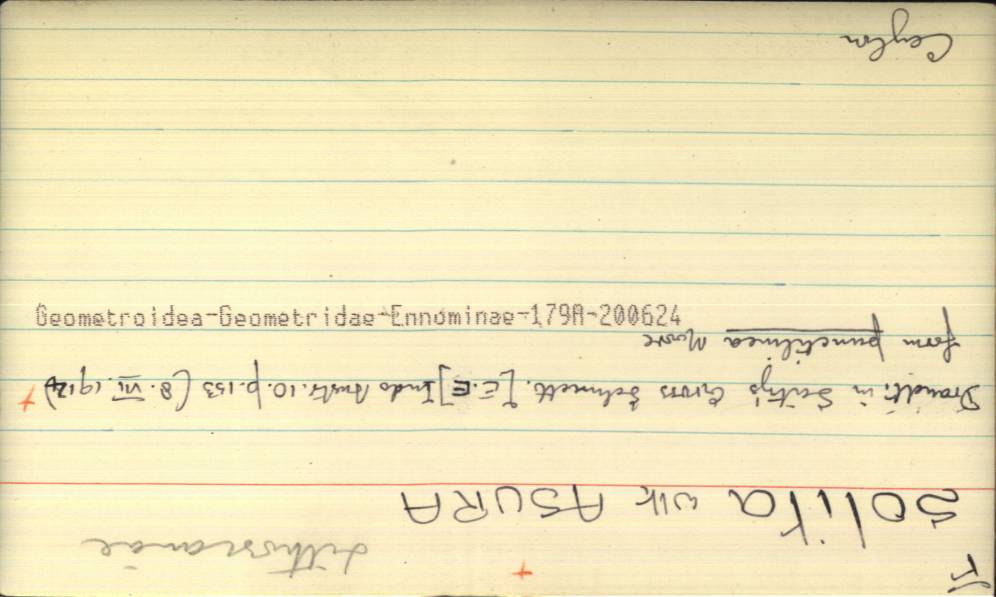 Lithosianae
solita wlk ASURA
Draudt. in Seitz's Gross Schmett. [E.E] Indo Austr. 10. p. 153 (8. VII. 1914)
form punctilinea Moore
Ceylon
Geometroidea-Geometridae-Ennominae-179A-200624